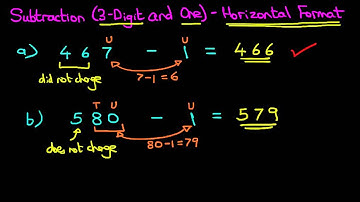 Subtraction (3-Digit and One) - Horizontal Format
U U
a) 4 6 7 - 1 = 466 ✓
did not change 7-1=6
T U U
b) 5 8 0 - 1 = 579
does not change 80-1=79